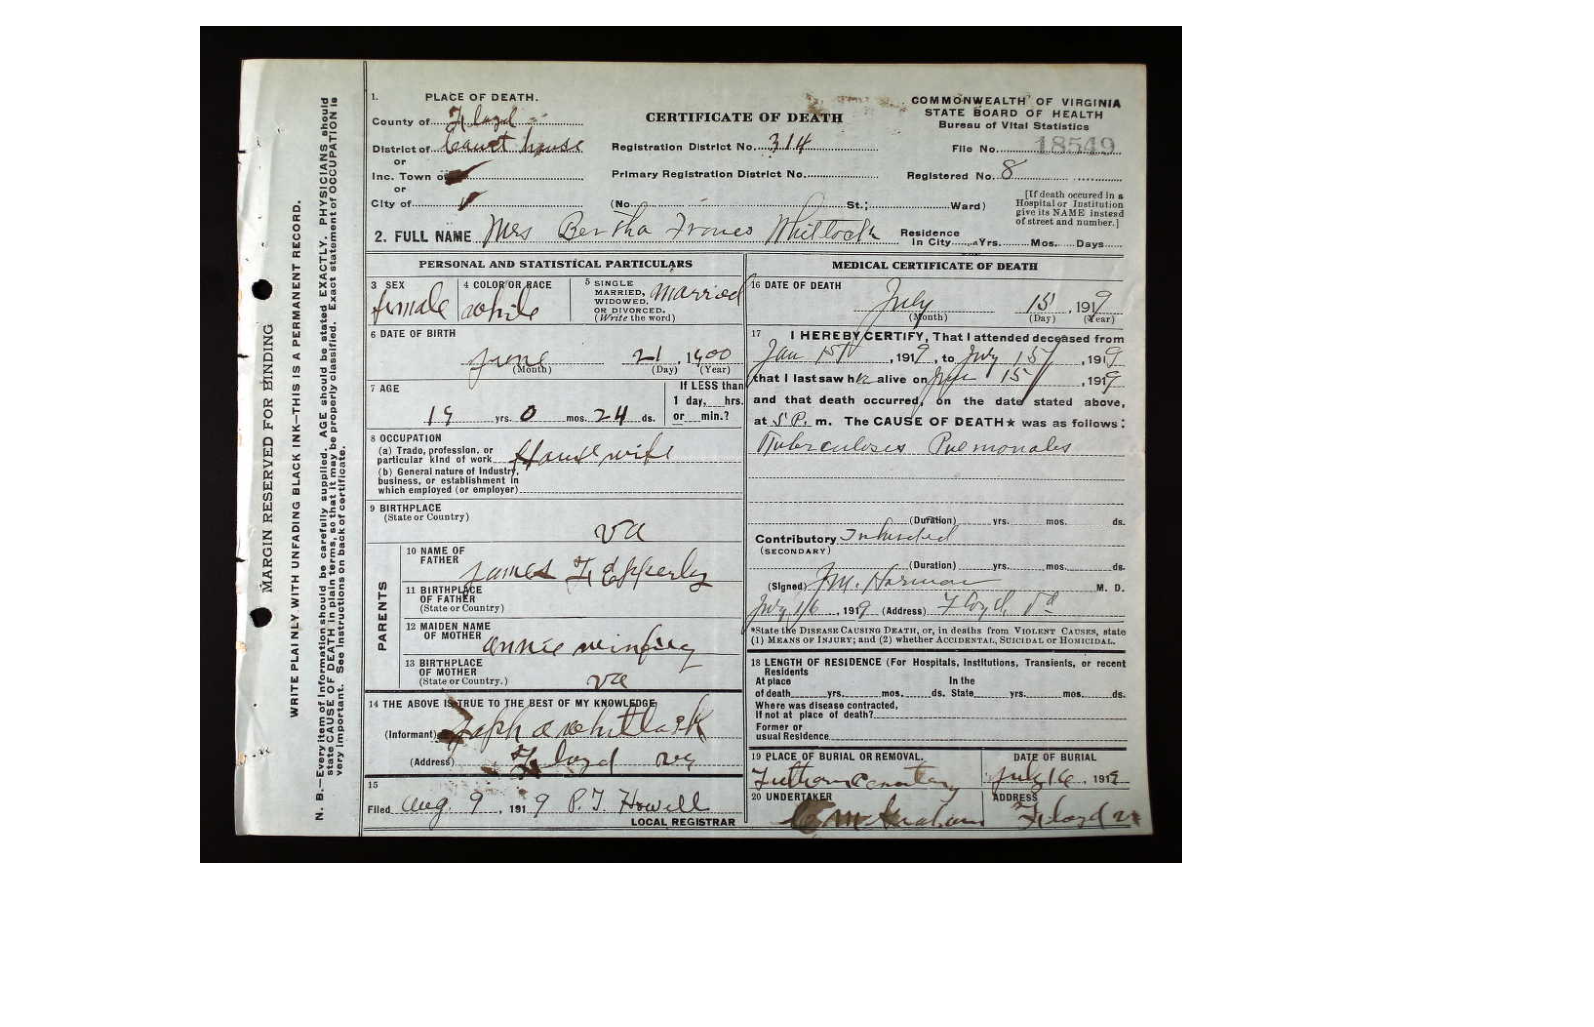 1. PLACE OF DEATH.
County of Floyd
District of Court house
or
Inc. Town of
or
City of
CERTIFICATE OF DEATH
Registration District No. 314
Primary Registration District No.
(No. St.; Ward)
COMMONWEALTH OF VIRGINIA
STATE BOARD OF HEALTH
Bureau of Vital Statistics
File No. 18549
Registered No. 8
[If death occured in a
Hospital or Institution
give its NAME instead
of street and number.]
2. FULL NAME Mrs Bertha Whitlock
Residence
In City Yrs. Mos. Days
PERSONAL AND STATISTICAL PARTICULARS
3 SEX
female
4 COLOR OR RACE
white
5 SINGLE
MARRIED,
WIDOWED,
OR DIVORCED.
(Write the word)
married
6 DATE OF BIRTH
June 21, 1900
(Month) (Day) (Year)
7 AGE
19 yrs. 0 mos. 24 ds.
If LESS than
1 day, hrs.
or min.?
8 OCCUPATION
(a) Trade, profession, or
particular kind of work House wife
(b) General nature of Industry,
business, or establishment in
which employed (or employer)
9 BIRTHPLACE
(State or Country)
va
PARENTS
10 NAME OF
FATHER
James Epperly
11 BIRTHPLACE
OF FATHER
(State or Country)
12 MAIDEN NAME
OF MOTHER
annie
13 BIRTHPLACE
OF MOTHER
(State or Country.)
va
14 THE ABOVE IS TRUE TO THE BEST OF MY KNOWLEDGE
(Informant) whitlock
(Address) Floyd va
15
Filed Aug. 9, 1919 P.T. Howell
LOCAL REGISTRAR
MEDICAL CERTIFICATE OF DEATH
16 DATE OF DEATH
July 15, 1919
(Month) (Day) (Year)
17 I HEREBY CERTIFY, That I attended deceased from
Jan 15th, 1919, to July 15, 1919
that I last saw h alive on 15, 1919
and that death occurred, on the date stated above,
at 5 P. m. The CAUSE OF DEATH★ was as follows:
Tuberculosis Pulmonales
(Duration) yrs. mos. ds.
Contributory
(SECONDARY)
(Duration) yrs. mos. ds.
(Signed) J.M. Harman M. D.
July 16, 1919 (Address) Floyd, Va
*State the DISEASE CAUSING DEATH, or, in deaths from VIOLENT CAUSES, state
(1) MEANS OF INJURY; and (2) whether ACCIDENTAL, SUICIDAL or HOMICIDAL.
18 LENGTH OF RESIDENCE (For Hospitals, Institutions, Transients, or recent
Residents
At place In the
of death yrs. mos. ds. State yrs. mos. ds.
Where was disease contracted,
If not at place of death?
Former or
usual Residence
19 PLACE OF BURIAL OR REMOVAL.
DATE OF BURIAL
July 16, 1919
20 UNDERTAKER
Graham
ADDRESS
Floyd va
MARGIN RESERVED FOR BINDING
WRITE PLAINLY, WITH UNFADING BLACK INK—THIS IS A PERMANENT RECORD.
N. B.—Every item of information should be carefully supplied. AGE should be stated EXACTLY. PHYSICIANS should
state CAUSE OF DEATH in plain terms, so that it may be properly classified. Exact statement of OCCUPATION is
very important. See instructions on back of certificate.